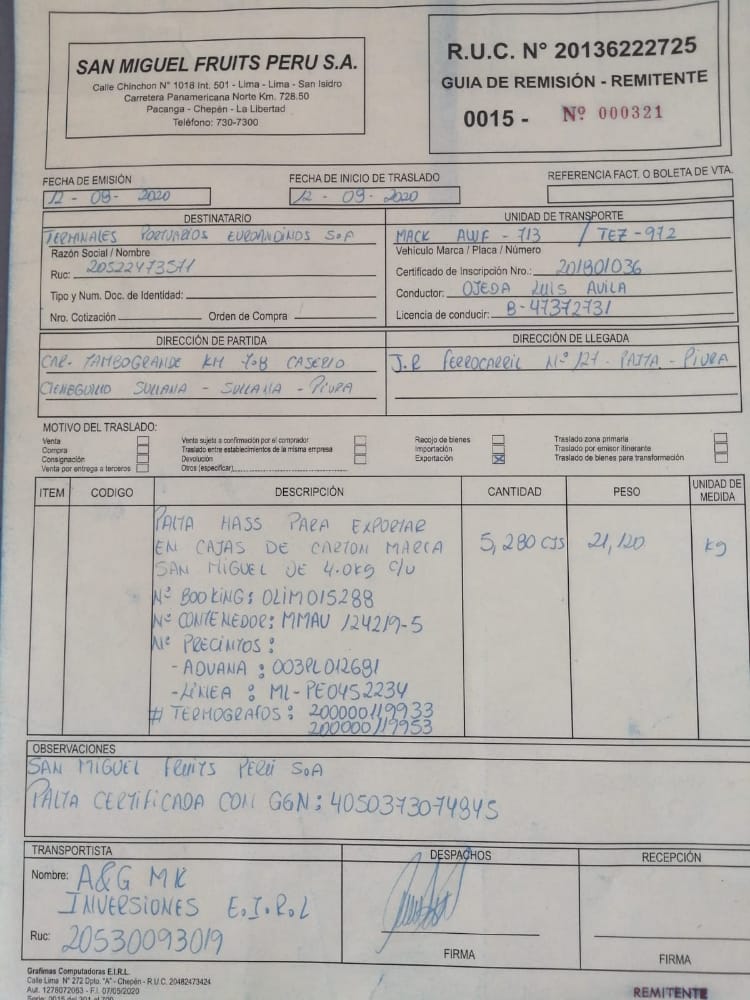 SAN MIGUEL FRUITS PERU S.A.
Calle Chinchon N° 1018 Int. 501 - Lima - Lima - San Isidro
Carretera Panamericana Norte Km. 728.50
Pacanga - Chepén - La Libertad
Teléfono: 730-7300
R.U.C. N° 20136222725
GUIA DE REMISIÓN - REMITENTE
0015 - Nº 000321
FECHA DE EMISIÓN
12 - 09 - 2020
FECHA DE INICIO DE TRASLADO
12 - 09 - 2020
REFERENCIA FACT. O BOLETA DE VTA.
DESTINATARIO
TERMINALES PORTUARIOS EUROANDINOS S.A
Razón Social / Nombre
Ruc: 20522473571
Tipo y Num. Doc. de Identidad:
Nro. Cotización Orden de Compra
UNIDAD DE TRANSPORTE
MACK AWF - 713 / TEZ - 972
Vehículo Marca / Placa / Número
Certificado de Inscripción Nro.: 201801036
Conductor: OJEDA LUIS AVILA
Licencia de conducir: B-47372731
DIRECCIÓN DE PARTIDA
CAR. TAMBOGRANDE KM 708 CASERIO
CIENEGUILLO SULLANA - SULLANA - PIURA
DIRECCIÓN DE LLEGADA
J.R FERROCARRIL Nº 127 - PAITA - PIURA
MOTIVO DEL TRASLADO:
Venta
Compra
Consignación
Venta por entrega a terceros
Venta sujeta a confirmación por el comprador
Traslado entre establecimientos de la misma empresa
Devolución
Otros (especificar)
Recojo de bienes
Importación
Exportación X
Traslado zona primaria
Traslado por emisor itinerante
Traslado de bienes para transformación
ITEM CODIGO DESCRIPCIÓN CANTIDAD PESO UNIDAD DE MEDIDA
PALTA HASS PARA EXPORTAR
EN CAJAS DE CARTON MARCA 5,280 CJS 21,120 kg
SAN MIGUEL DE 4.0kg c/u
Nº BOOKING: OLIM015288
Nº CONTENEDOR: MMAU 124219-5
Nº PRECINTOS:
- ADUANA : 003PL012681
- LÍNEA : ML-PE0452234
# TERMOGRAFOS : 200000119933
200000119953
OBSERVACIONES
SAN MIGUEL FRUITS PERÚ S.A
PALTA CERTIFICADA CON GGN: 4050373074845
TRANSPORTISTA
Nombre: A&G MK
INVERSIONES E.I.R.L
Ruc: 20530093019
DESPACHOS
FIRMA
RECEPCIÓN
FIRMA
Grafimas Computadoras E.I.R.L.
Calle Lima N° 272 Dpto. "A" - Chepén - R.U.C. 20482473424
Aut. 1278072063 - F.I. 07/05/2020
REMITENTE